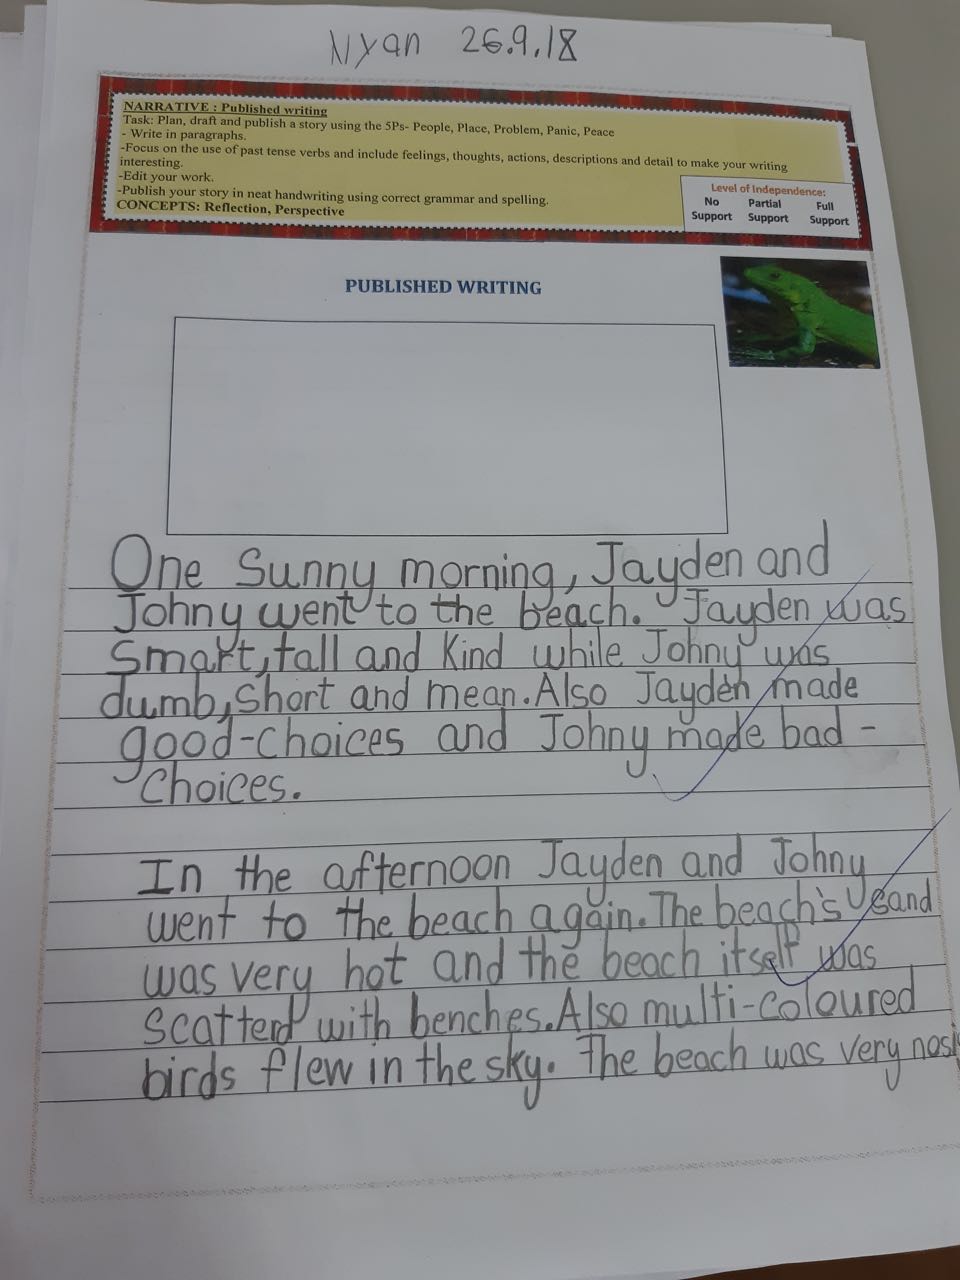 Nyan 26.9.18
NARRATIVE : Published writing
Task: Plan, draft and publish a story using the 5Ps- People, Place, Problem, Panic, Peace
- Write in paragraphs.
-Focus on the use of past tense verbs and include feelings, thoughts, actions, descriptions and detail to make your writing
interesting.
-Edit your work.
-Publish your story in neat handwriting using correct grammar and spelling.
CONCEPTS: Reflection, Perspective
Level of Independence:
No Partial Full
Support Support Support
PUBLISHED WRITING
One Sunny morning, Jayden and
Johny went to the beach. Jayden was
Smart, tall and Kind while Johny was
dumb, short and mean. Also Jayden made
good-choices and Johny made bad-
choices.
In the afternoon Jayden and Johny
went to the beach again. The beach's sand
was very hot and the beach itself was
Scatterd with benches. Also multi-coloured
birds flew in the sky. The beach was very